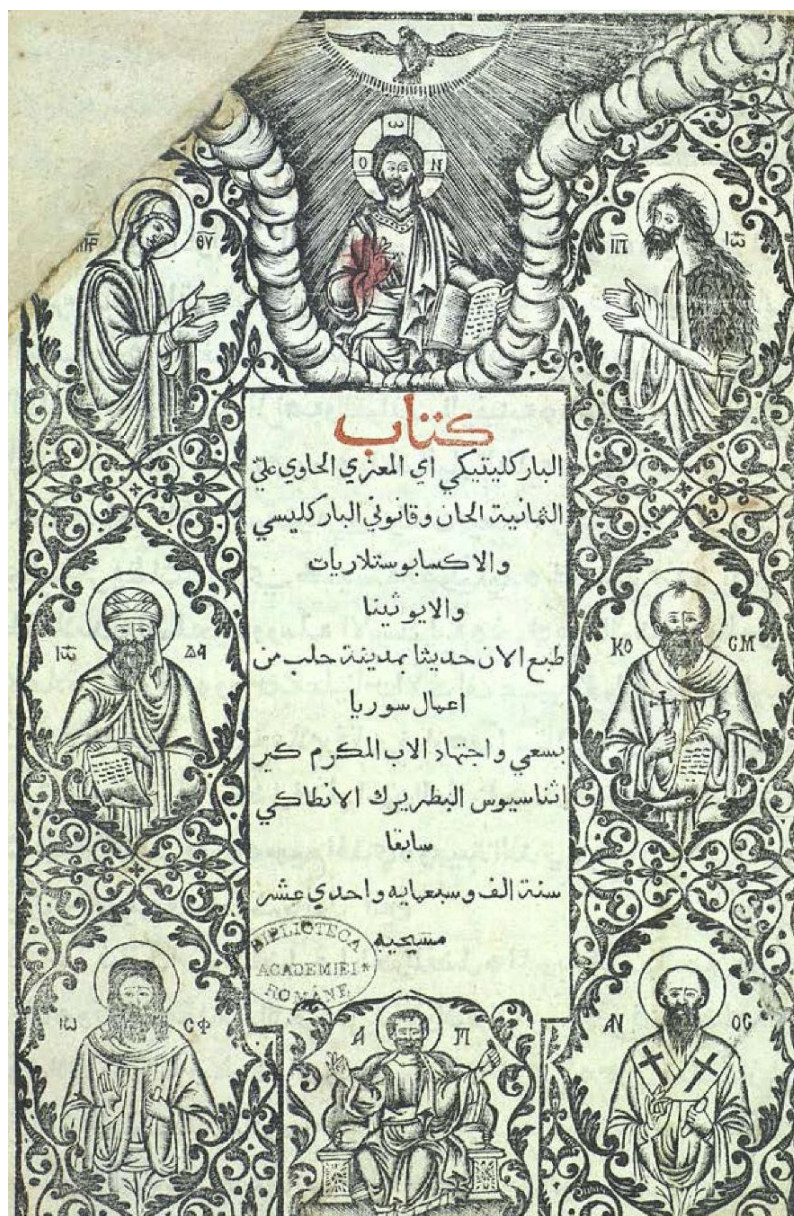 ω
Ο Ν
ΜΗΡ ΘΥ
ΠΠ ΙΩ
كتاب
الباركليتيكي اي المعزي الحاوي علي
الثمانية الحان وقانوني الباركليسي
والاكسابوستلاريات
والايوثينا
طبع الان حديثا بمدينة حلب من
اعمال سوريا
بسعي واجتهاد الاب المكرم كير
اثناسيوس البطريرك الانطاكي
سابقا
سنة الف وسبعمايه واحدي عشر
مسيحيه
ΙΩ ΔΑ
ΚΟ СΜ
BIBLIOTECA
ACADEMIEI
ROMÂNE
ΙΩ СΦ
Α Π
ΑΝ ΟС